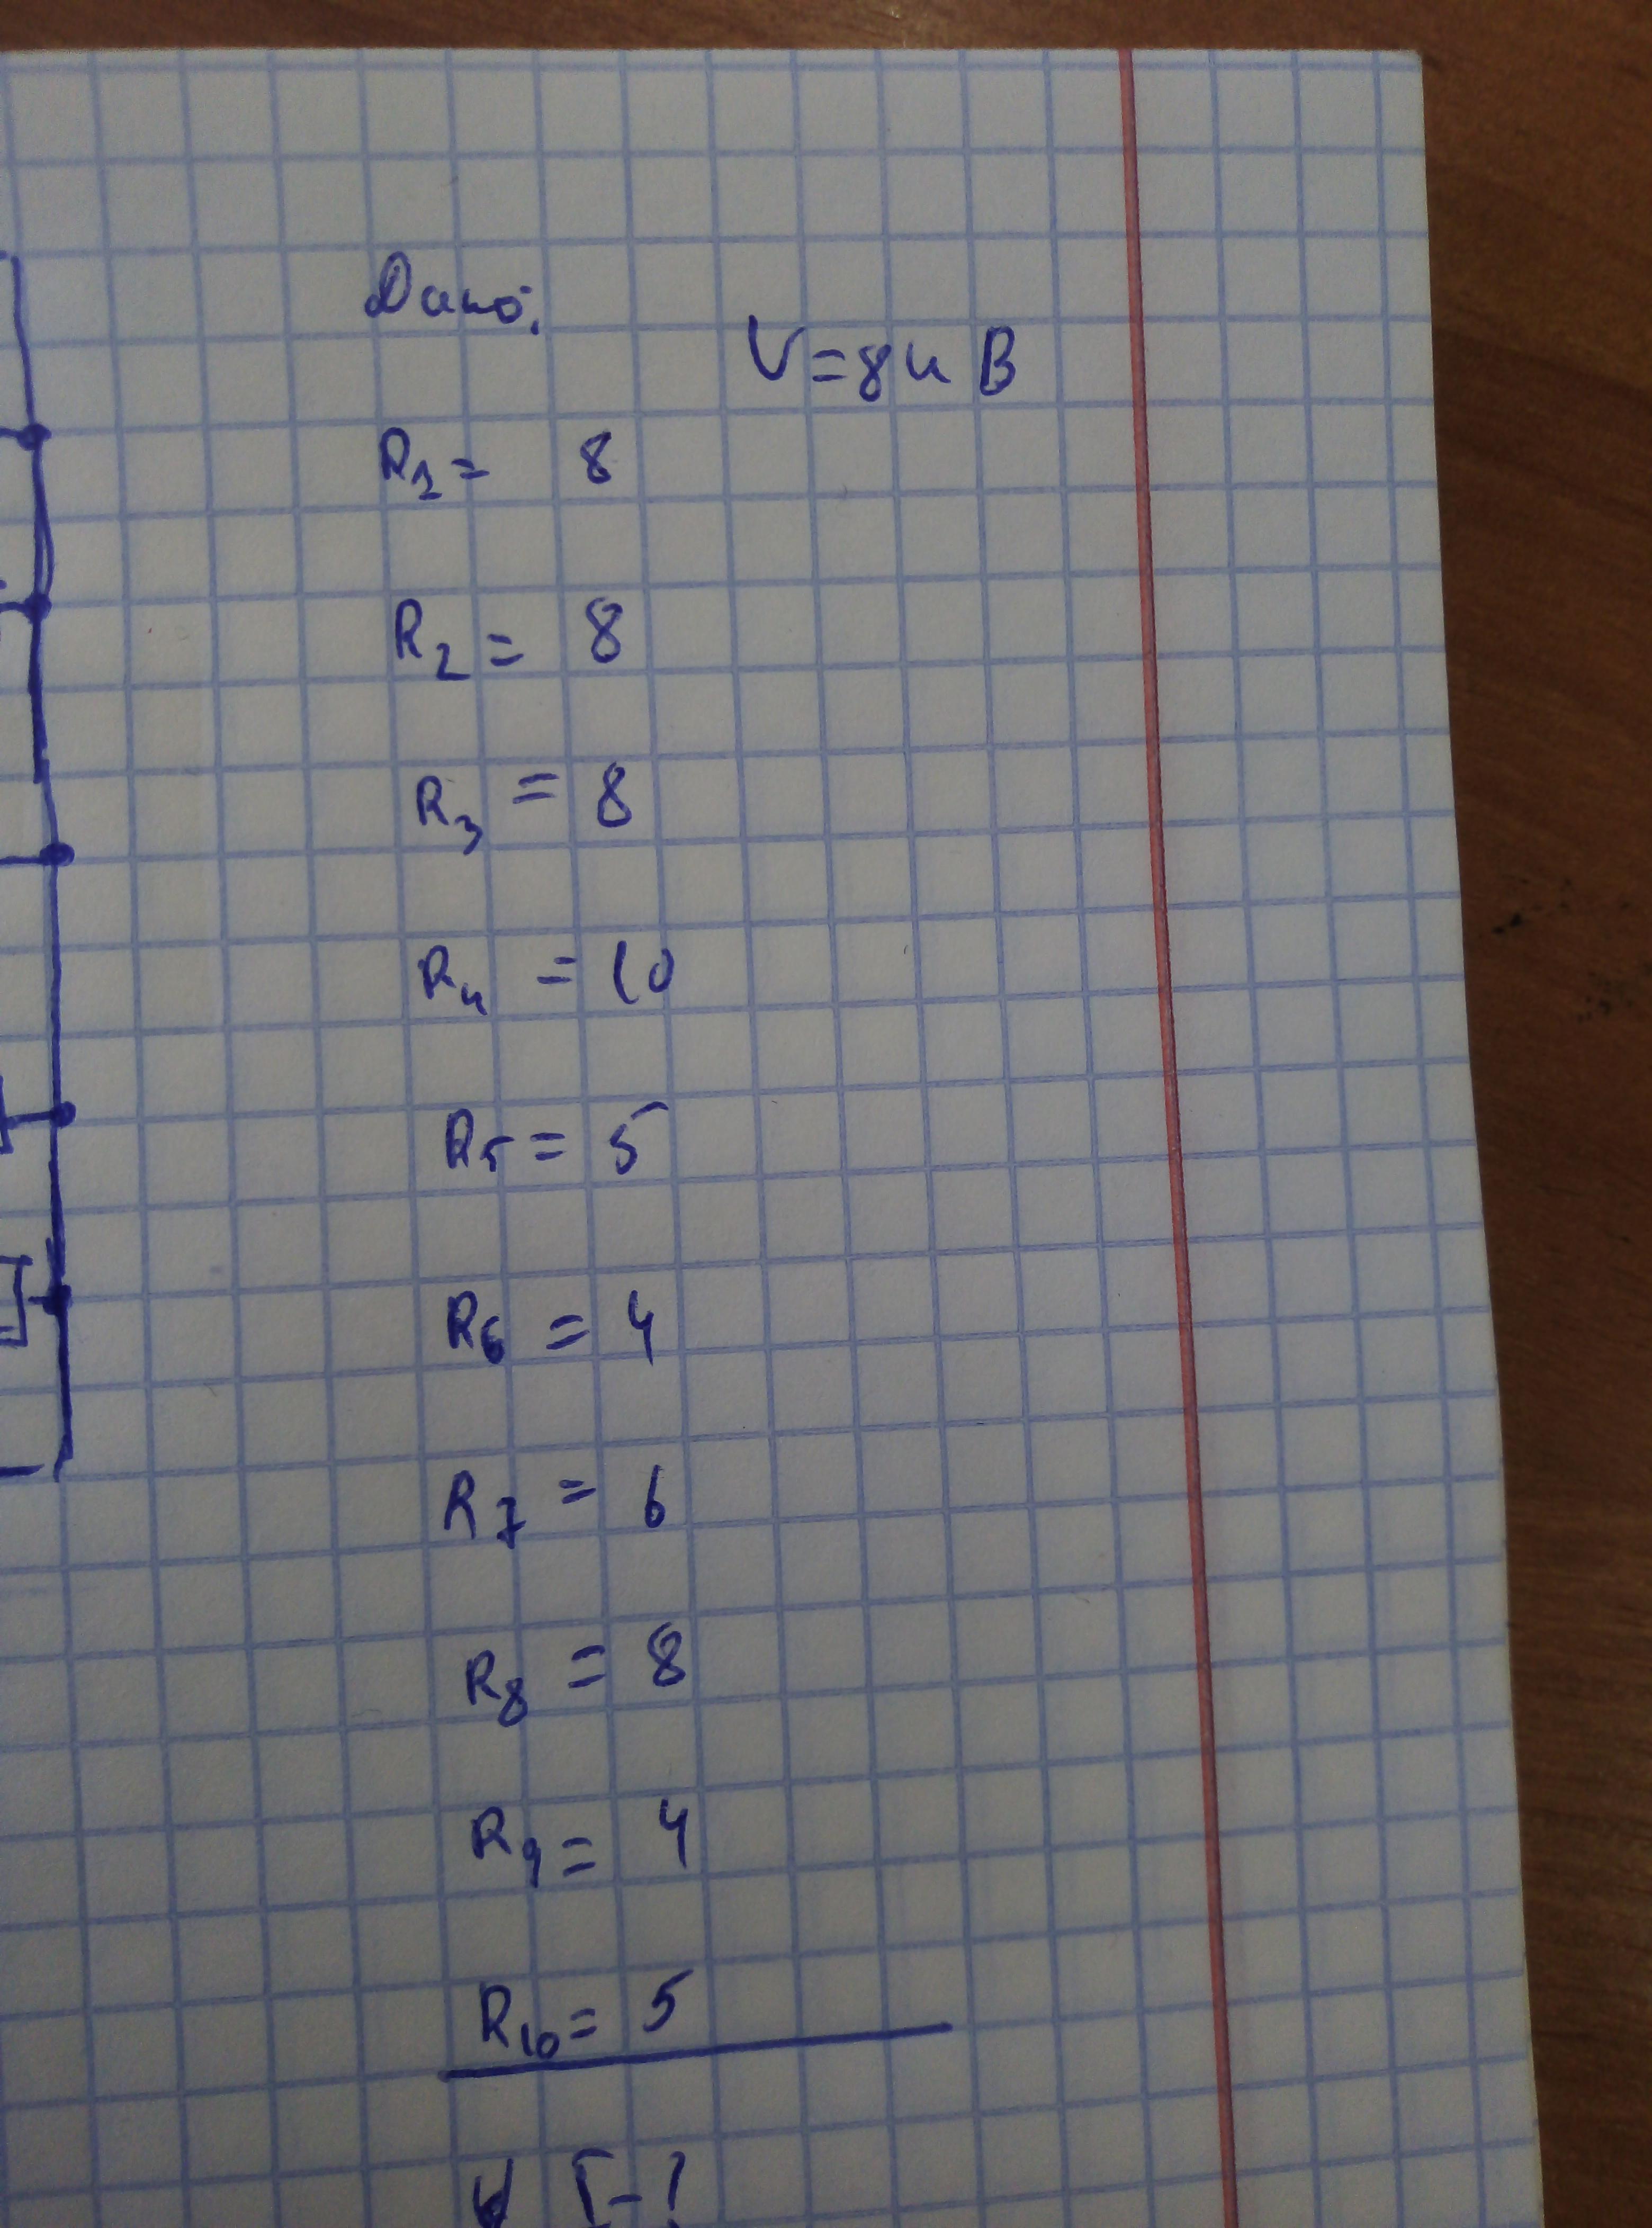 Дано:
V=84 В
R1= 8
R2 = 8
R3 = 8
R4 = 10
R5 = 5
R6 = 4
R7 = 6
R8 = 8
R9 = 4
R10 = 5
I-?